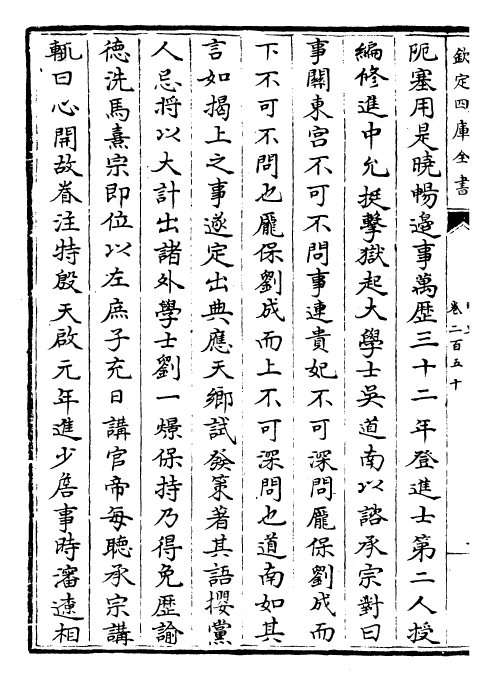 欽定四庫全書
卷二百五十
阨塞用是曉暢邊事萬歷三十二年登進士第二人授
編修進中允挺擊獄起大學士吳道南以諮承宗對曰
事關東宮不可不問事連貴妃不可深問龎保劉成而
下不可不問也龎保劉成而上不可深問也道南如其
言如揭上之事遂定出典應天鄉試發策著其語攖黨
人忌将以大計出諸外學士劉一燝保持乃得免歴諭
德洗馬熹宗即位以左庶子充日講官帝每聽承宗講
輒曰心開故眷注特殷天啟元年進少詹事時瀋遼相